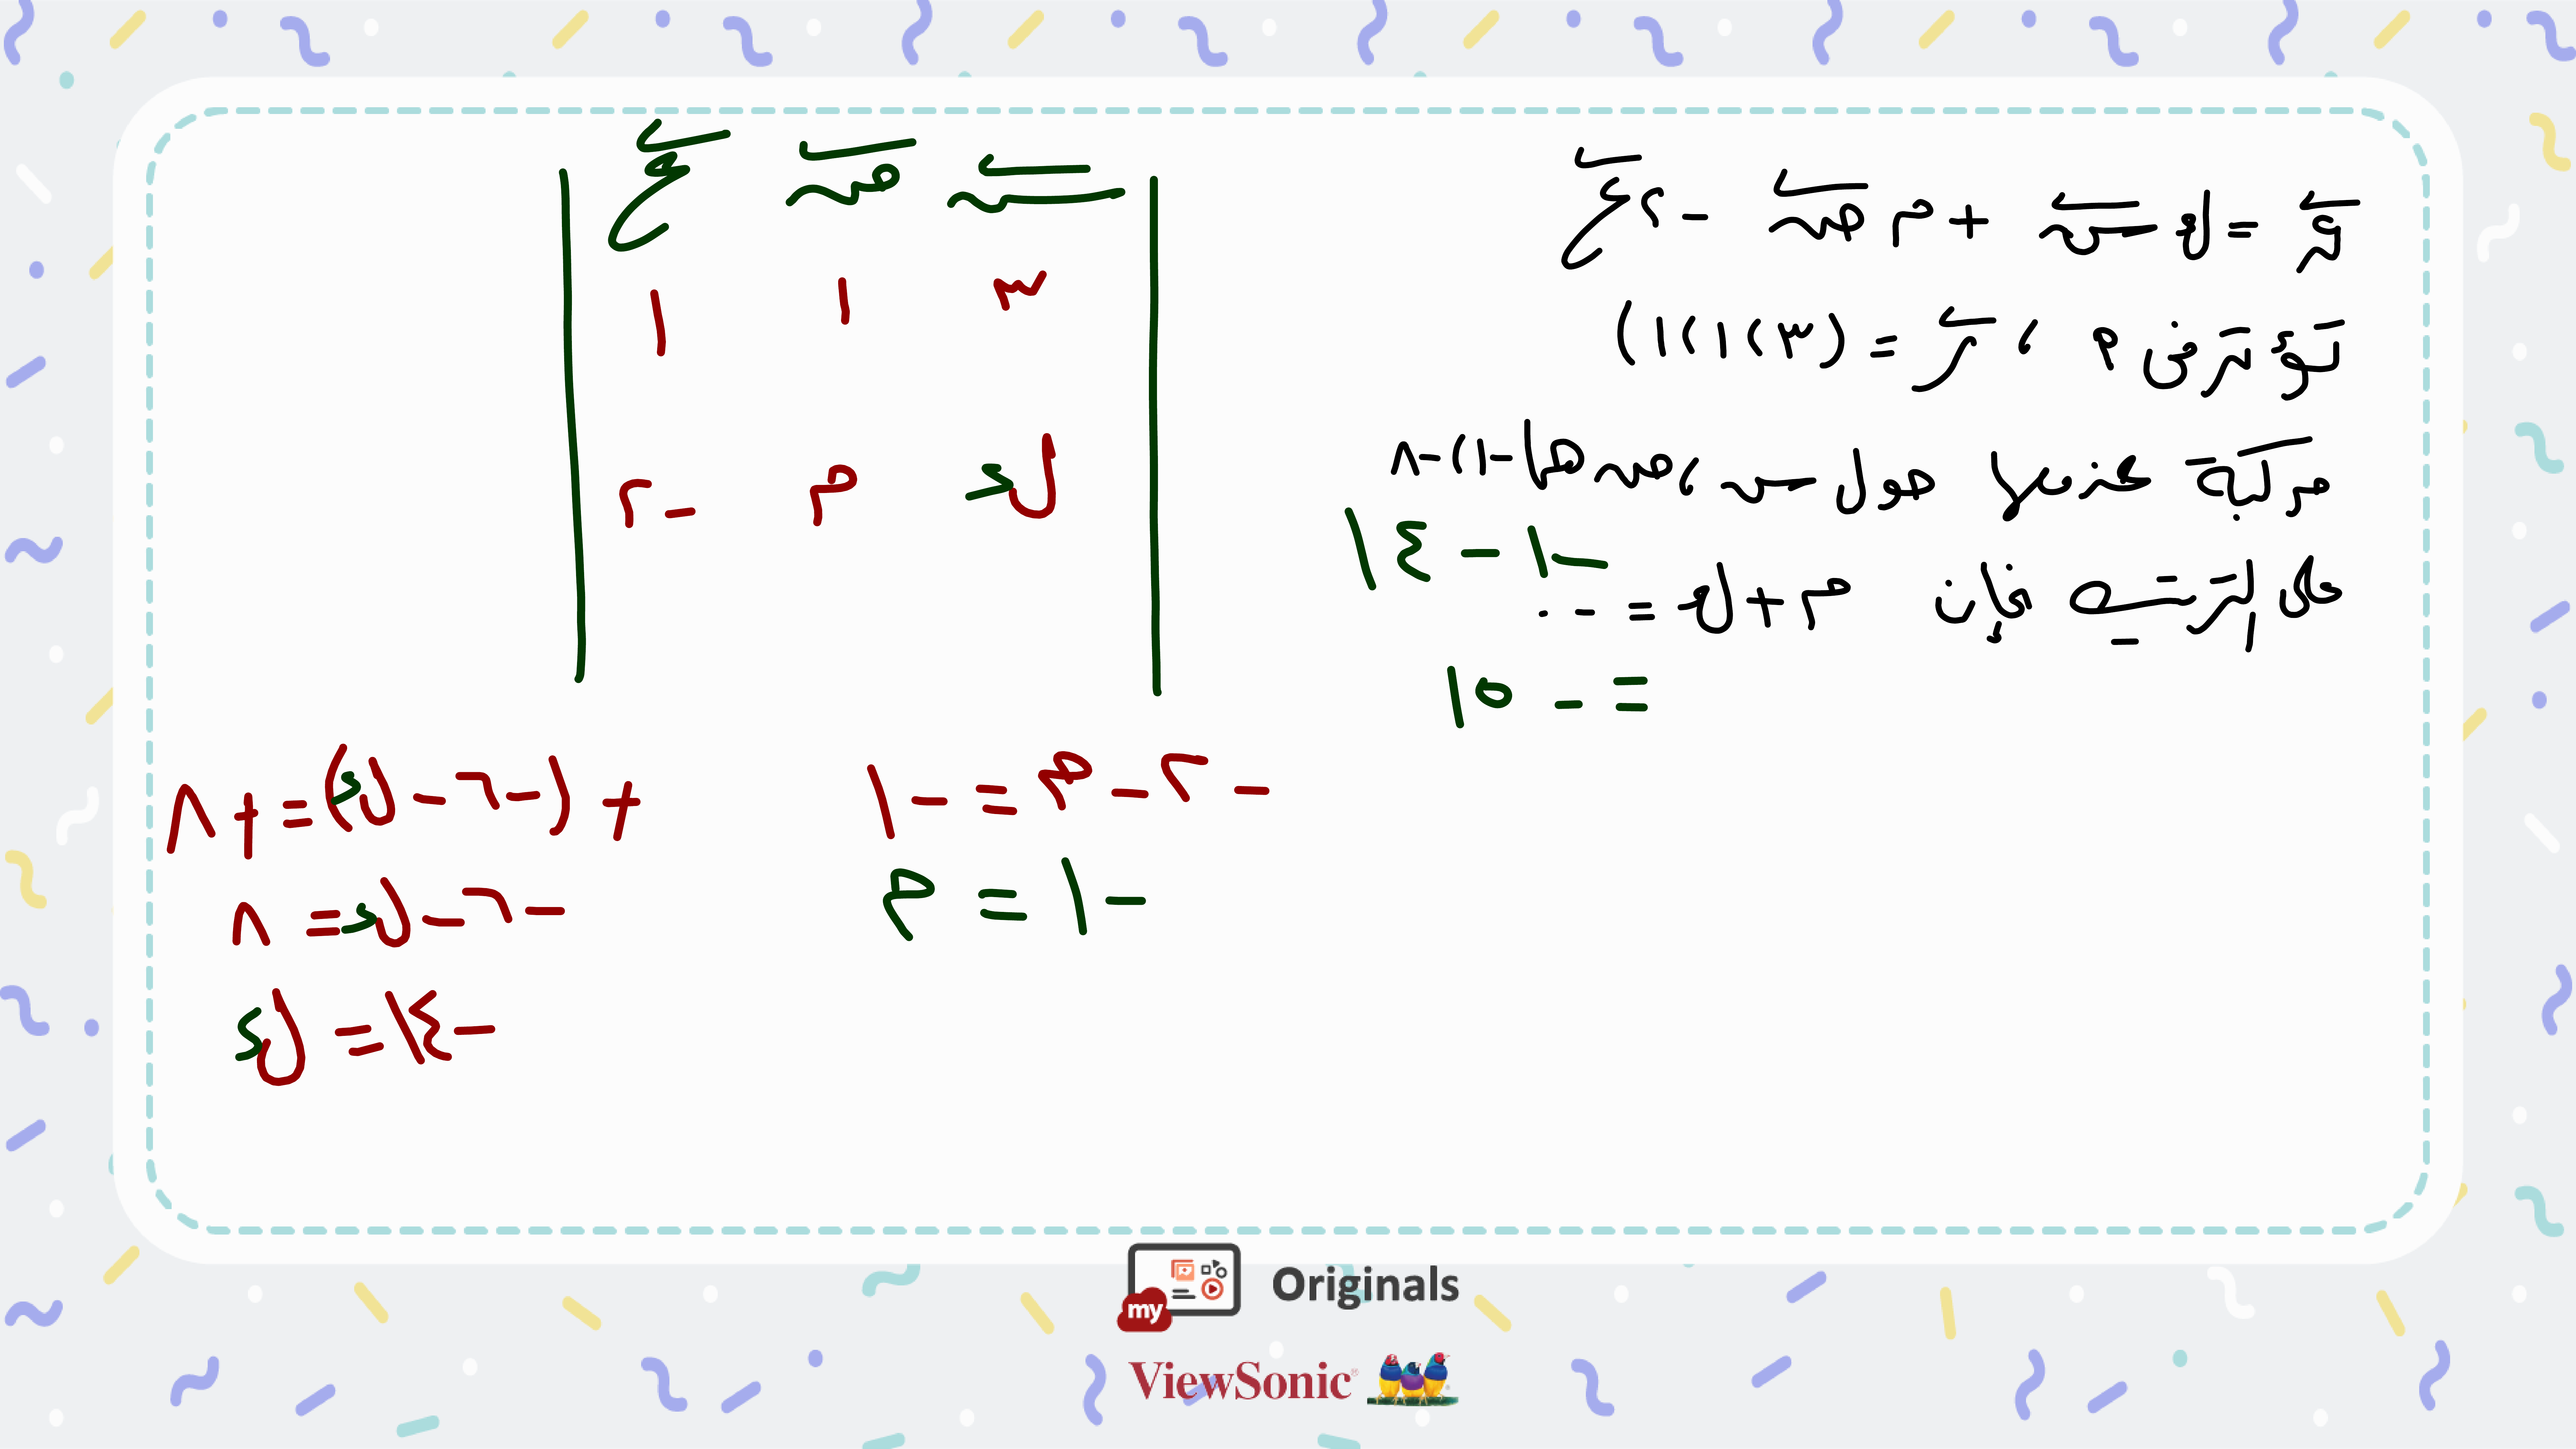 ق = ك س + م ص - ٢ ع
تؤثر فى م ، ر = (٣ ، ١ ، ١)
مركبة عزمها حول س ، ص هما - ١ ، - ٨
على الترتيب فإن م + ك = ...
- ١ - ١٤
= - ١٥
س ص ع
٣ ١ ١
ك م - ٢
- ٢ - م = - ١
م = - ١
+ (- ٦ - ك) = + ٨
- ٦ - ك = ٨
ك = - ١٤
my Originals
ViewSonic